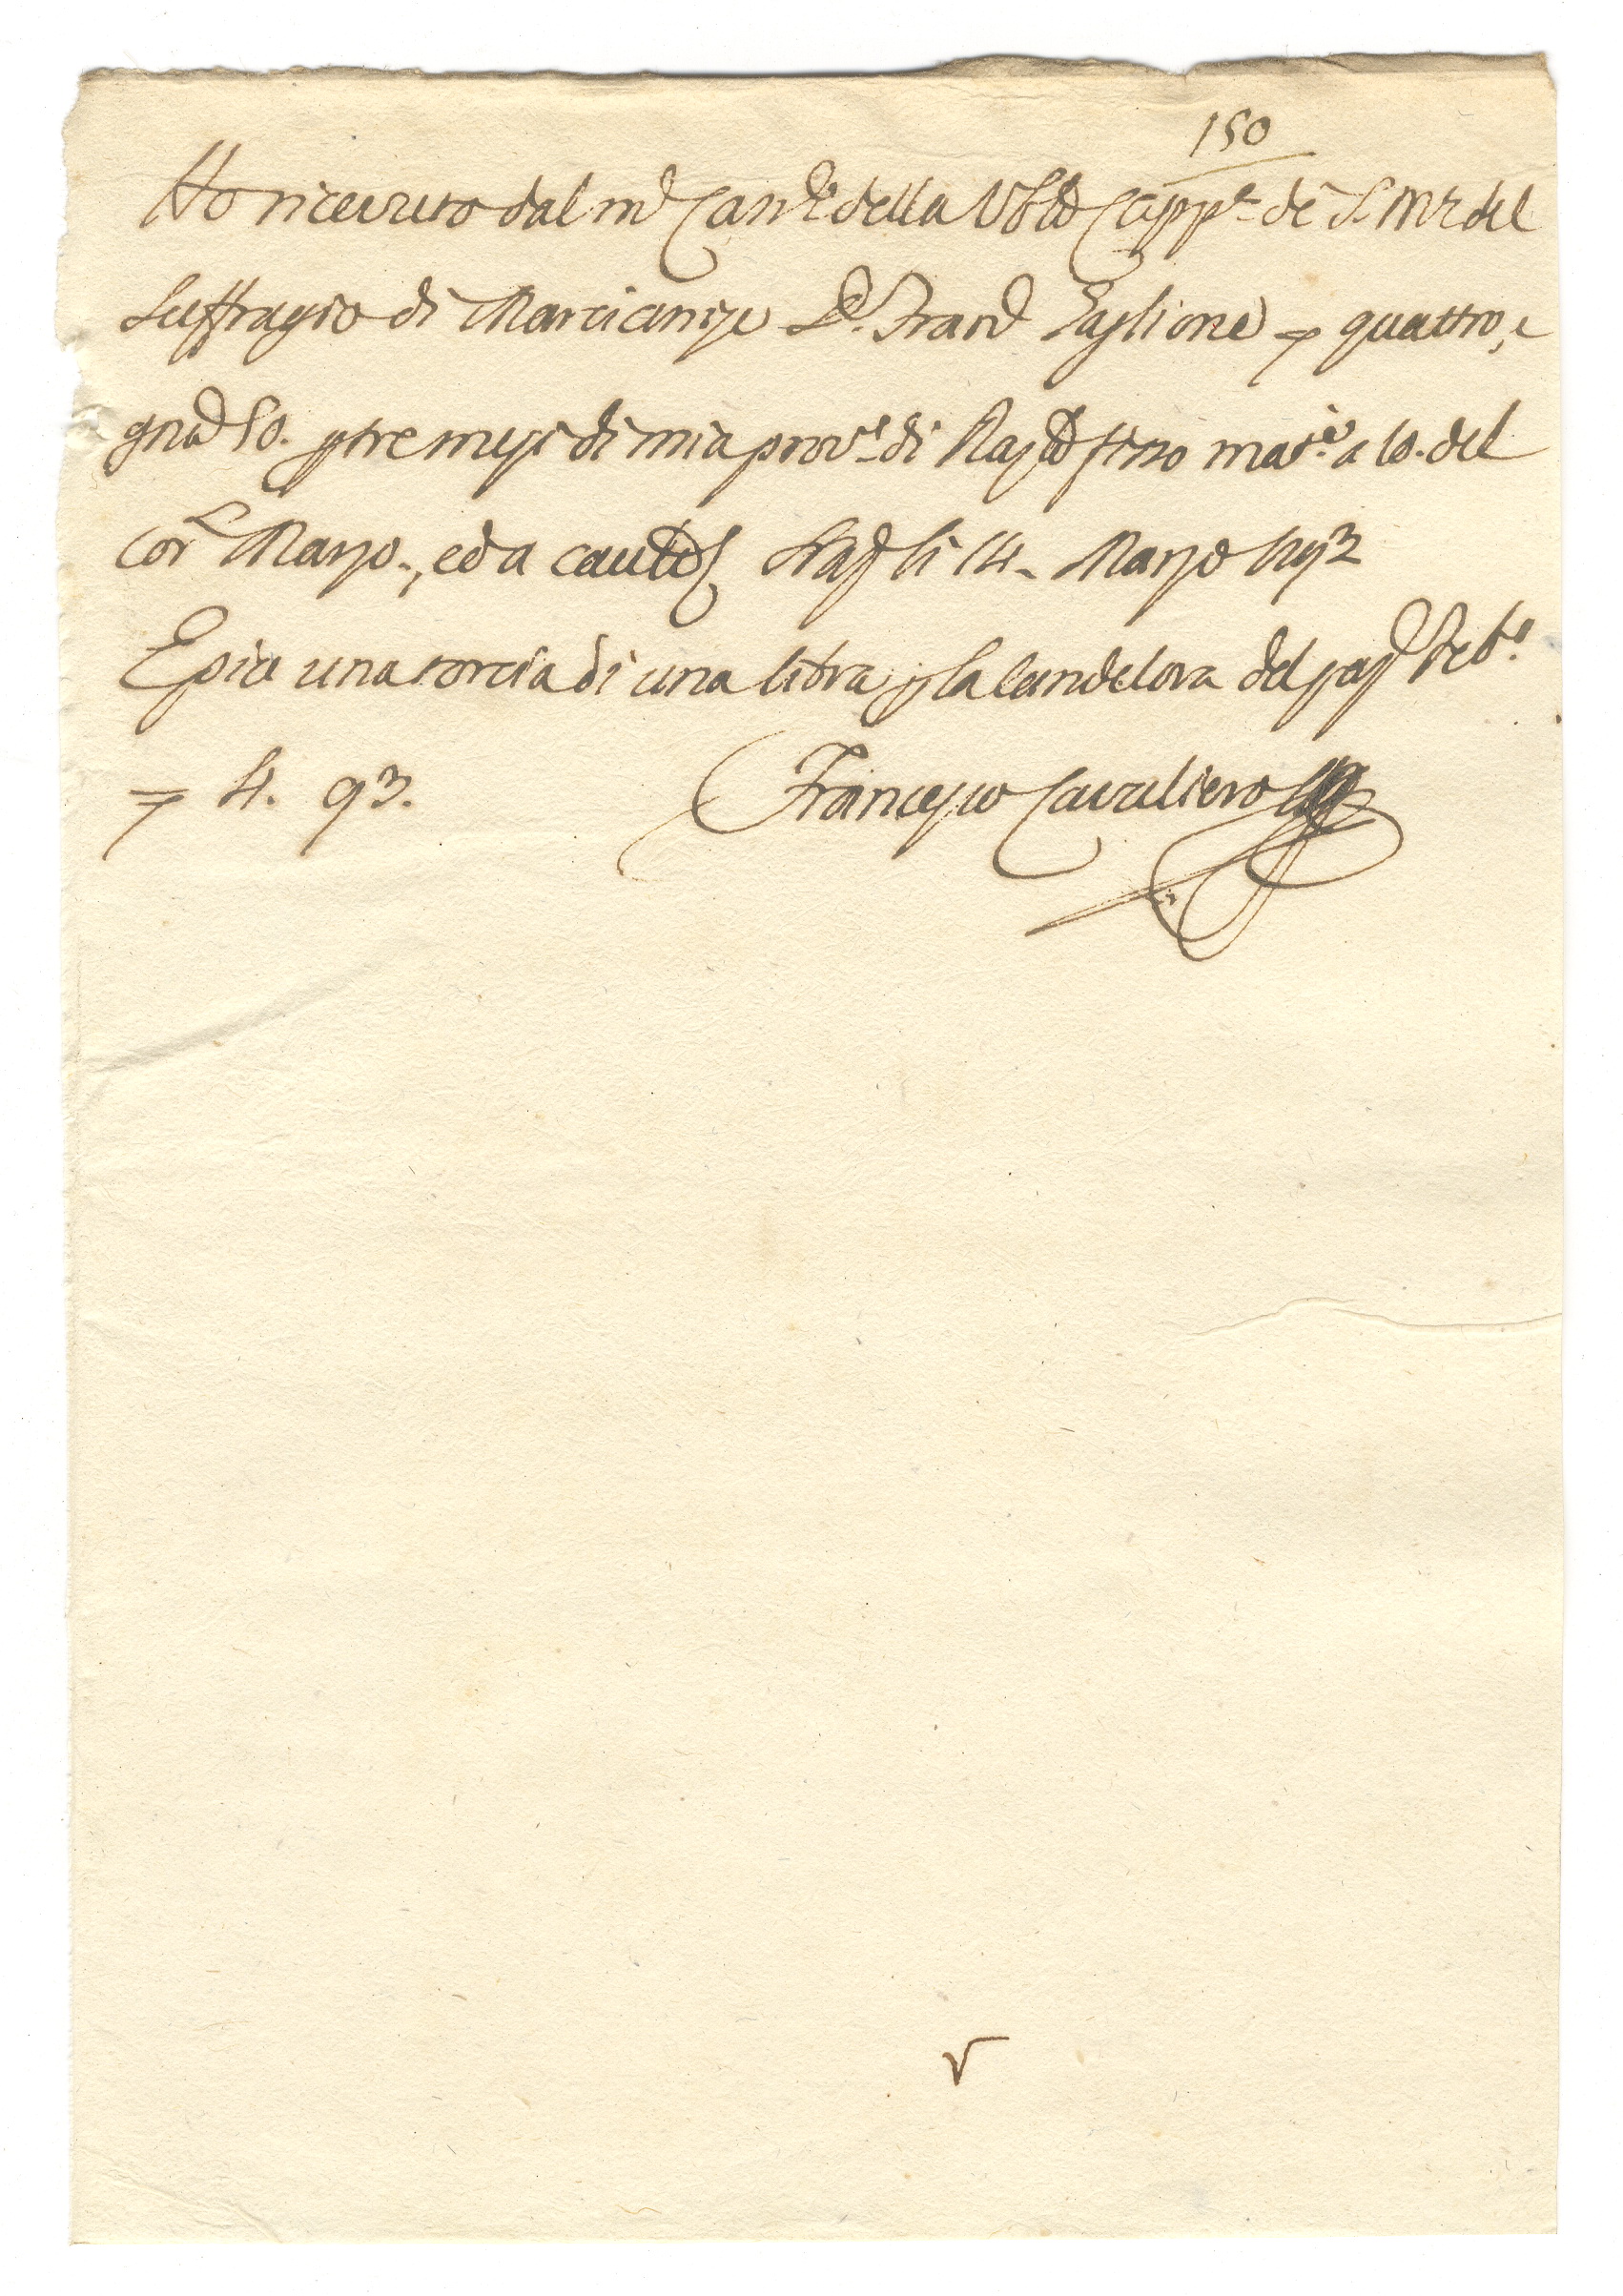 150
Ho ricevuto dal m.co Can.re della Ve.le Capp.a di S. M.a del
Suffragio di Marcianise D. Fran.co Taglione quattro, e
gra 50. p tre mesi di mia prov.e di mat.o a 10. del
cor.e Marzo, ed a cautela li 14. Marzo 1792
E più una torcia di una libra p la Candelora del pas.o Feb.o
4. 93. Francesco Cavaliero